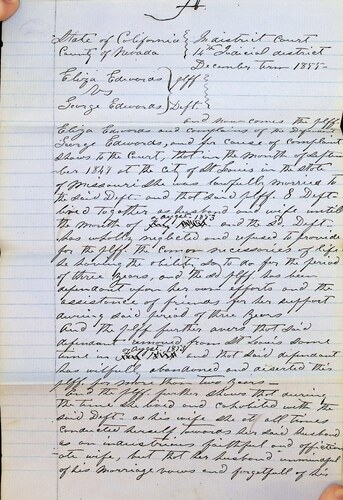 A
State of California } In district Court
County of Nevada } 14th Judicial district
December term 1855-
Eliza Edwards } plff
vs
George Edwards } Deft-
and now comes the plff
Eliza Edwards and complains of the defendant
George Edwards, and for cause of complaint
shows to the Court, that in the month of Septem
ber 1848 at the city of St Louis in the state
of Missouri she was lawfully married to
the said Deft- and that said plff. & Deft-
lived together as husband and wife until
the month of August 1853 and the sd. Deft-
has wholly neglected and refused to provide
for the plff the common necessaries of life
he having the ability so to do for the period
of three years, and the sd plff has been
dependant upon her own efforts and the
assistance of friends for her support
during said period of three years
And the plff further avers that said
defendant removed from St Louis some
time in and that said defendant
has wilfully abandoned and deserted this
plff for more than two years-
And the plff further shows that during
the time she lived and cohabited with the
said Deft- as his wife she at all times
conducted herself towards her said husband
as an industrious faithful and affection
ate wife, but that her husband unmindful
of his marriage vows and forgetfull of his